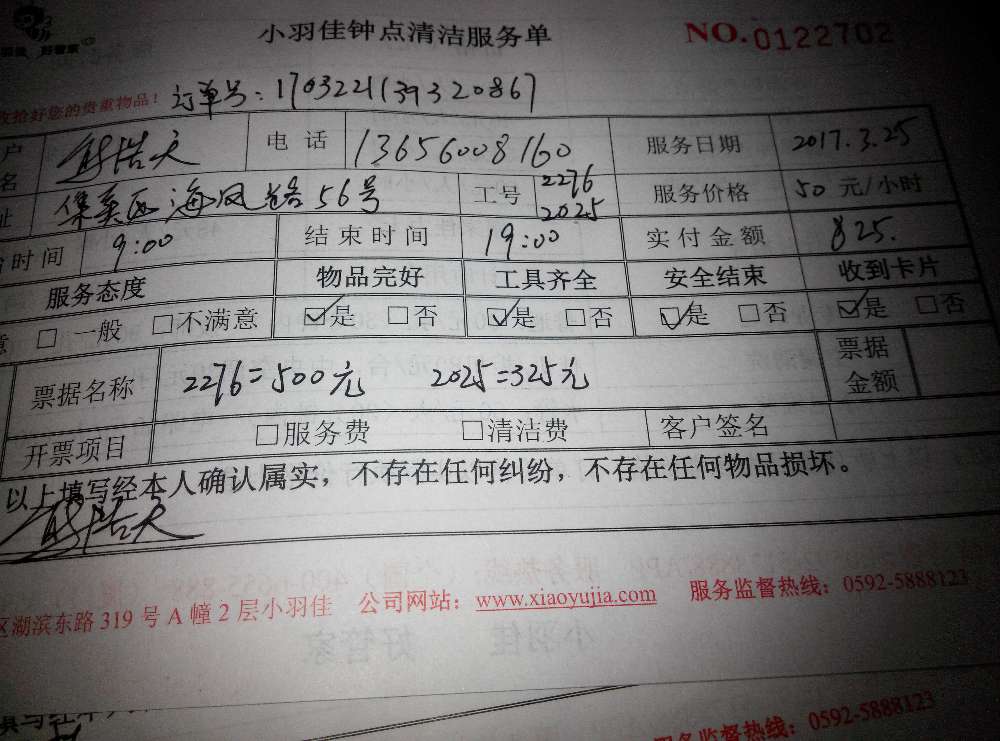 小羽佳钟点清洁服务单 NO.0122702
好管家
收拾好您的贵重物品! 订单号:1703221139320867
户名 浩天 电话 13656008160 服务日期 2017.3.25
址 集美区海凤路56号 工号 2276 2025 服务价格 50元/小时
时间 9:00 结束时间 19:00 实付金额 825.
服务态度 物品完好 工具齐全 安全结束 收到卡片
意 □一般 □不满意 ☑是 □否 ☑是 □否 ☑是 □否 ☑是 □否
票据名称 2276=500元 2025=325元 票据金额
开票项目 □服务费 □清洁费 客户签名
以上填写经本人确认属实,不存在任何纠纷,不存在任何物品损坏。
浩天
区湖滨东路319号A幢2层小羽佳 公司网站:www.xiaoyujia.com 服务监督热线:0592-5888123
服务监督热线:0592-5888123